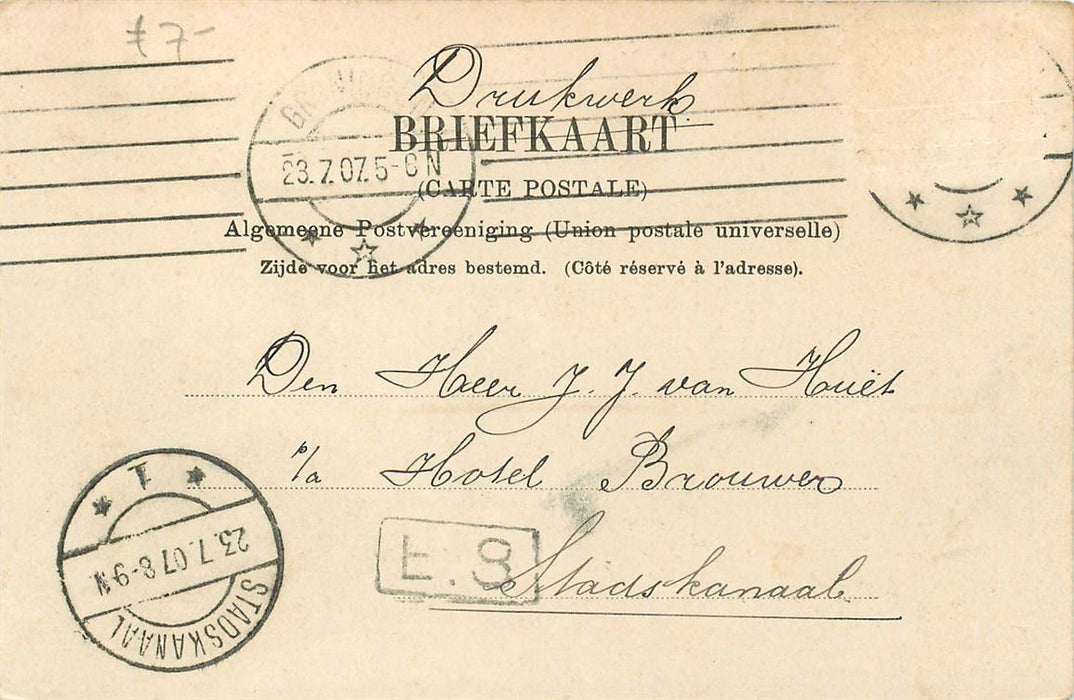 £ 7-
Drukwerk
BRIEFKAART
(CARTE POSTALE)
Algemeene Postvereeniging (Union postale universelle)
Zijde voor het adres bestemd. (Côté réservé à l'adresse).
GRONINGEN
23.7.07.5-6N
Den Heer J. J. van Huët
p/a Hotel Brouwer
Stadskanaal
1
23.7.07 8-9N
STADSKANAAL